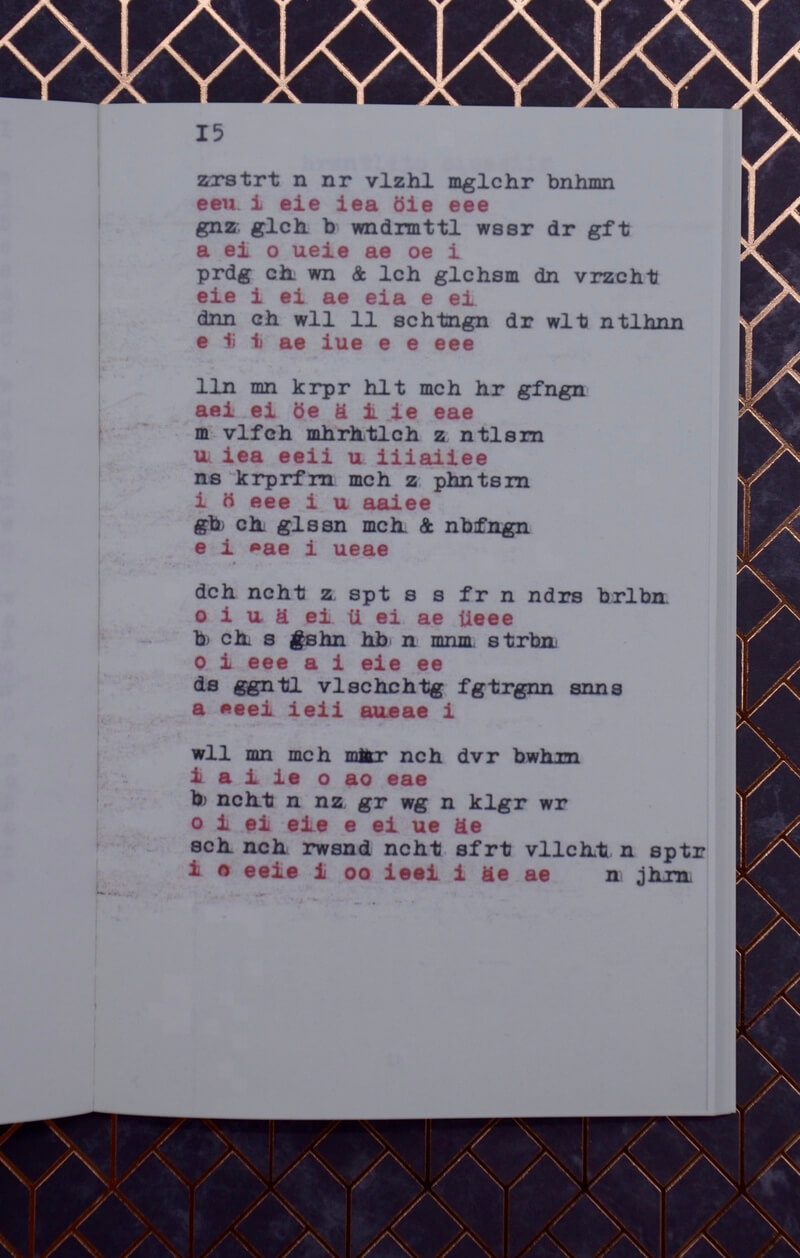 15
zrstrt n nr vlzhl mglchr bnhmn
eeu i eie iea öie eee
gnz glch b wndrmttl wssr dr gft
a ei o ueie ae oe i
prdg ch wn & lch glchsm dn vrzcht
eie i ei ae eia e ei
dnn ch wll ll schtngn dr wlt ntlhnn
e i i ae iue e e eee
lln mn krpr hlt mch hr gfngn
aei ei öe ä i ie eae
m vlfch mhrhtlch z ntlsrn
u iea eeii u iiiaiiee
ns krprfrn mch z phntsrn
i ö eee i u aaiee
gb ch glssn mch & nbfngn
e i eae i ueae
dch ncht z spt s s fr n ndrs brlbn
o i u ä ei ü ei ae üeee
b ch s gshn hb n mnm strbn
o i eee a i eie ee
ds ggntl vlschchtg fgtrgnn snns
a eeei ieii aueae i
wll mn mch mhr nch dvr bwhrn
i a i ie o ao eae
b ncht n nz gr wg n klgr wr
o i ei eie e ei ue äe
sch nch rwsnd ncht sfrt vllcht n sptr
i o eeie i oo ieei i äe ae n jhrn